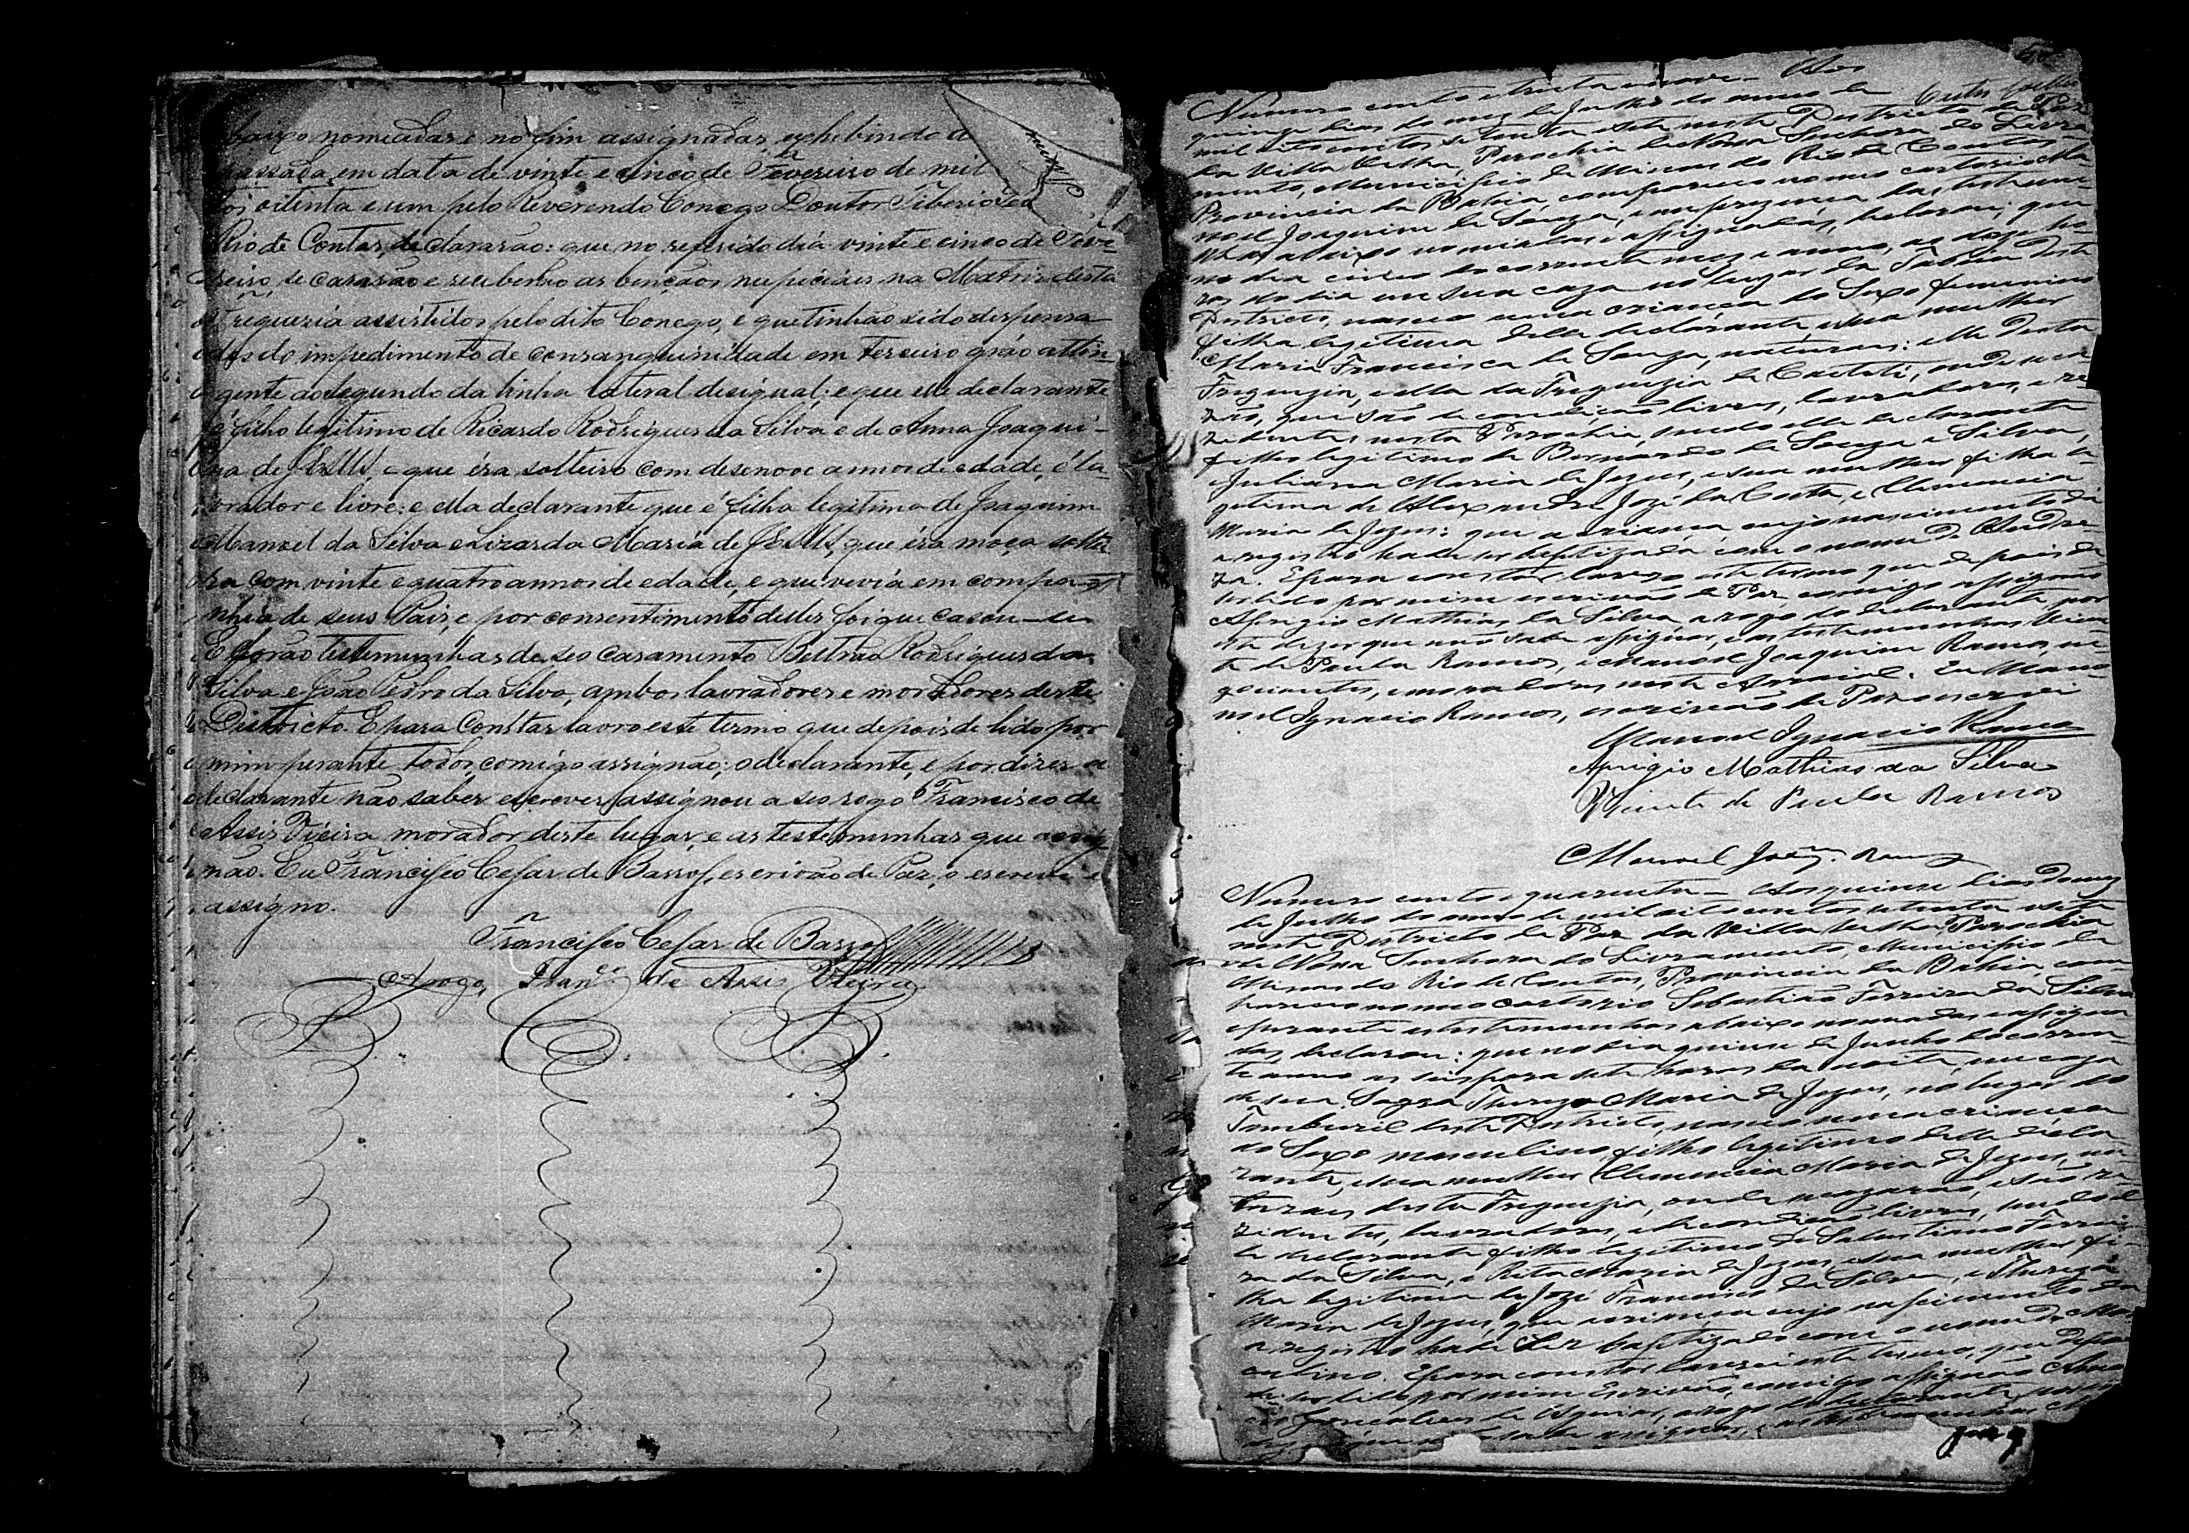 baixo nomeadas e no fim assignadas, exhibindo a
passada em data de vinte e cinco de Fevereiro de mil
oitenta e um pelo Reverendo Conego Doutor Tiberio
Rio de Contas, declararão: que no referido dia vinte e cinco de Feve-
reiro, se casarão e receberão as bençãos nupciáes na Matriz desta
Freguezia assistidos pelo dito Conego, e que tinhão sido dispensa
dos do impedimento de consanguinidade em terceiro gráo attin
gente ao segundo da linha lateral desigual: e que elle declarante
é filho legitimo de Ricardo Rodrigues da Silva e de Anna Joaqui-
na de JESUS, e que éra solteiro com desenove annos de edade, é la-
vrador e livre: e ella declarante que é filha legitima de Joaquim
Manoel da Silva e Lizarda Maria de JESUS, que éra moça soltei
ra com vinte e quatro annos de edade, e que vevia em compa-
nhia de seus Pais, e por consentimento delles foi que casou-se
E forão testemunhas de seo casamento Beltrão Rodrigues da
Silva e João Pedro da Silva, ambos lavradores e moradores deste
Districto. E para constar lavro este termo que depois de lido por
mim perante todos, comigo assignão; o declarante, e por dizer a
declarante não saber escrever, assignou a seo rogo Francisco de
Assis Vieira morador deste lugar, e as testemunhas que assig
não. Eu Francisco Cesar de Barros, escrivão de Paz, o escrevi e
assigno.
Francisco Cesar de Barros
Arogo, Fran.co de Assis Vieira
Numero cento e trinta e nove - Aos
quinze dias do mez de Julho do anno de
mil oitocentos setenta e sete neste Districto de Paz
da Villa Velha, Parochia de Nossa Senhora do Livra
mento, Municipio de Minas do Rio de Contas
Provincia da Bahia, compareceo no meo cartorio Ma
noel Joaquim de Souza, e em prezença das testemu-
nhas abaixo nomiadas e assignadas, declarou; que
no dia cinco do corrente mez e anno, as doze ho
ras do dia em sua caza no lugar da Tabua deste
Districto, nasceo uma criança do Sexo feminino
filha legitima delle declarante, e sua mulher
Maria Francisca de Souza, naturaes: elle desta
Freguezia, e ella da Freguezia de Caeteté, onde se ca
zarão, que são de condição livres, lavradores, e re
zidentes nesta Parochia, sendo elle declarante
filho legitimo de Bernardo de Souza e Silva,
e Juliana Maria de Jezus, e sua mulher filha le-
gitima de Alexandre Jozé da Costa, e Clemencia
Maria de Jezus: que a criança, cujo nascimento dá
a registro hade ser baptizada com o nome de Andre-
za. E para constar lavro este termo que depois de
ser lido por mim escrivão de Paz, comigo assignão
Aprigio Mathias da Silva, a rogo do declarante, por
este dizer que não sabe assignar, e as testemunhas Vicen
te de Paula Ramos, e Manoel Joaquim Ramos, ne-
gociantes, e moradores neste Arraial. Eu Mano
el Ignacio Ramos, escrivão de Paz o escrevi
Manoel Ignacio Ramos
Aprigio Mathias da Silva
Vicente de Paula Ramos
Manoel Joaq.m Ramos
Numero cento e quarenta - Aos quinse dias do mez
de Julho do anno de mil oito centos setenta e sete
neste Districto de Paz da Villa Velha, Parochia
de Nossa Senhora do Livramento, Municipio de
Minas do Rio de Contas, Provincia da Bahia, com-
pareceo no meo cartorio Sebastião Ferreira da Silva
e perante as testemunhas abaixo nomeadas e assigna
das, declarou: que no dia quinse de Junho do corren-
te anno as seis para sete horas da noite, em caza
de sua Sogra Thereza Maria de Jezus, no lugar do
Tamburil deste Districto, nasceo uma criança
do Sexo masculino, filho legitimo delle decla-
rante, e sua mulher Clemencia Maria de Jezus, na
turaes desta Freguezia, onde se cazarão, e são re
zidentes, lavradores, e de condição livres, sendo el
le declarante filho legitimo de Salustiano Ferrei-
ra da Silva, e Rita Maria de Jezus, e sua mulher fi-
lha legitima de Jozé Francisco da Silva, e Thereza
Maria de Jezus, que a criança cujo nascimento dá
a registro hade ser baptizado com o nome de Mar
celino. E para constar lavrei este termo, que depois
de ser lido por mim Escrivão, comigo assignão
Gonsalves de Aguiar, a rogo do declarante, por
assignar, e as testemunhas